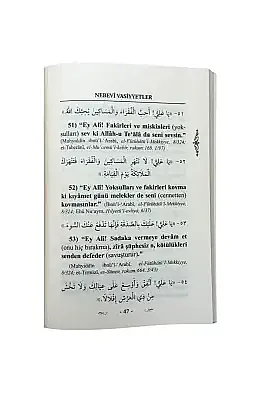 NEBEVÎ VASİYYETLER
٥١- «يَا عَلِيُّ! أَحِبَّ الْفُقَرَاءَ وَالْمَسَاكِينَ يُحِبُّكَ اللهُ.»
51) "Ey Ali! Fakirleri ve miskinleri (yok-
sulları) sev ki Allâh-u Te'âlâ da seni sevsin."
(Muhyiddîn ibnü'l-'Arabî, el-Fütûhâtü'l-Mekkiyye, 8/324;
٥٢- «يَا عَلِيُّ! لَا تَنْهَرِ الْمَسَاكِينَ وَالْفُقَرَاءَ، فَتَنْهَرَكَ
الْمَلَائِكَةُ يَوْمَ الْقِيَامَةِ.»
52) "Ey Ali! Yoksulları ve fakirleri kovma
ki kıyâmet günü melekler de seni (cennetten)
kovmasınlar." (İbnü'l-'Arabî, el-Fütûhâtü'l-Mekkiyye,
٥٣- «يَا عَلِيُّ! عَلَيْكَ بِالصَّدَقَةِ فَإِنَّهَا تَدْفَعُ عَنْكَ السُّوءَ.»
53) "Ey Ali! Sadaka vermeye devâm et
(onu hiç bırakma), zîrâ şüphesiz o, kötülükleri
senden defeder (savuşturur)."
(Muhyiddîn ibnü'l-'Arabî, el-Fütûhâtü'l-Mekkiyye,
٥٤- «يَا عَلِيُّ! أَنْفِقْ وَأَوْسِعْ عَلَى عِيَالِكَ وَلَا تَخْشَ
مِنْ ذِي الْعَرْشِ إِقْلَالًا.»
47